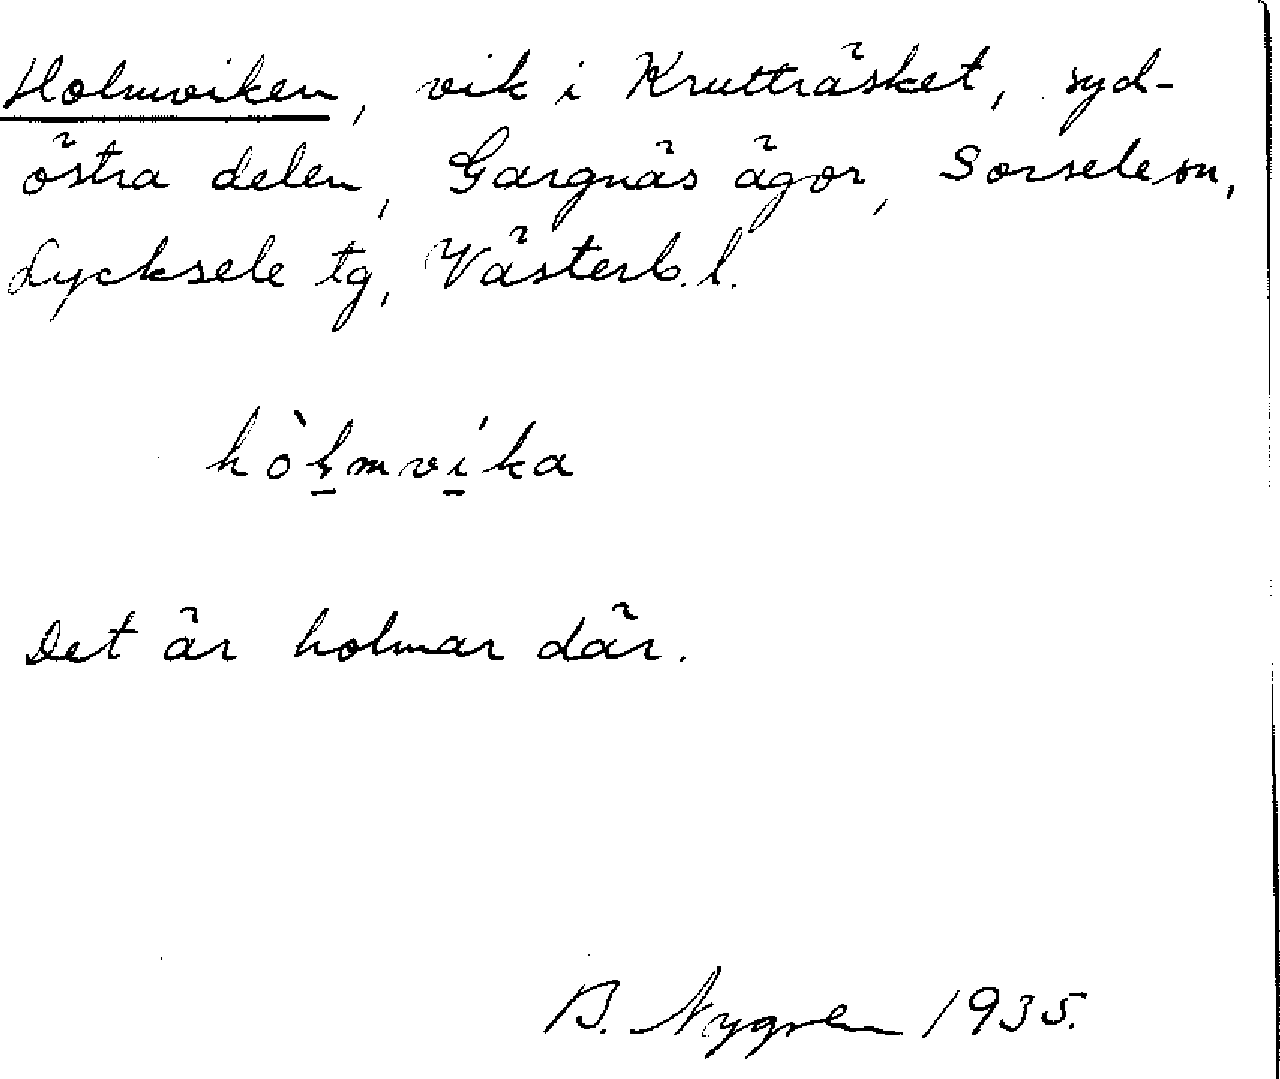 Holmviken, vik i Krutträsket, syd-
östra delen, Gargnäs ägor, Sorsele sn,
Lycksele tg, Västerb. l.
hòl̠mví̠ka
Det är holmar där.
B. Nygren 1935.